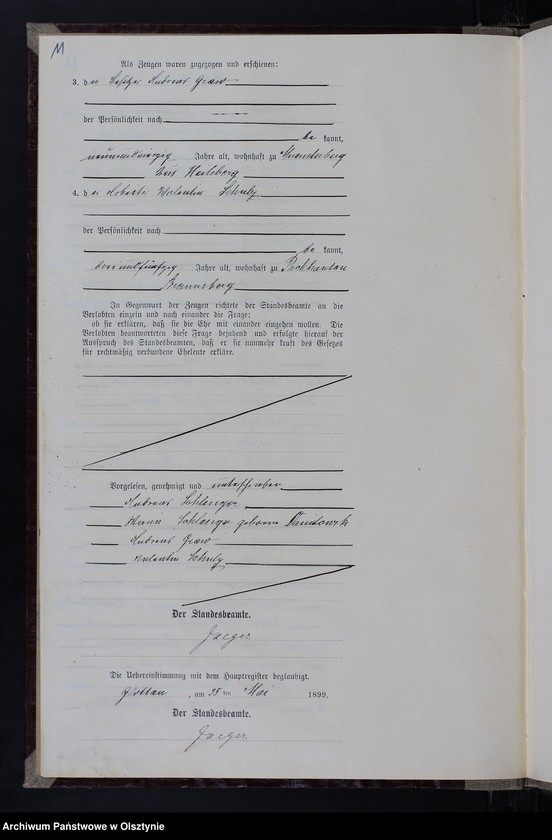 M
Als Zeugen waren zugezogen und erschienen:
3. der Besitzer Andreas Graw
der Persönlichkeit nach
be kannt,
neunundvierzig Jahre alt, wohnhaft zu
Heilsberg
4. der Valentin Schulz
der Persönlichkeit nach
be kannt,
dreiundfünfzig Jahre alt, wohnhaft zu Packhausen
Braunsberg
In Gegenwart der Zeugen richtete der Standesbeamte an die
Verlobten einzeln und nach einander die Frage:
ob sie erklären, daß sie die Ehe mit einander eingehen wollen. Die
Verlobten beantworteten diese Frage bejahend und erfolgte hierauf der
Ausspruch des Standesbeamten, daß er sie nunmehr kraft des Gesetzes
für rechtmäßig verbundene Eheleute erkläre.
Vorgelesen, genehmigt und unterschrieben
Andreas Schlenger
Schlenger geborene
Andreas Graw
Valentin Schulz
Der Standesbeamte.
Jaeger
Die Uebereinstimmung mit dem Hauptregister beglaubigt.
Glottau, am 25 ten Mai 1899.
Der Standesbeamte.
Jaeger
Archiwum Państwowe w Olsztynie